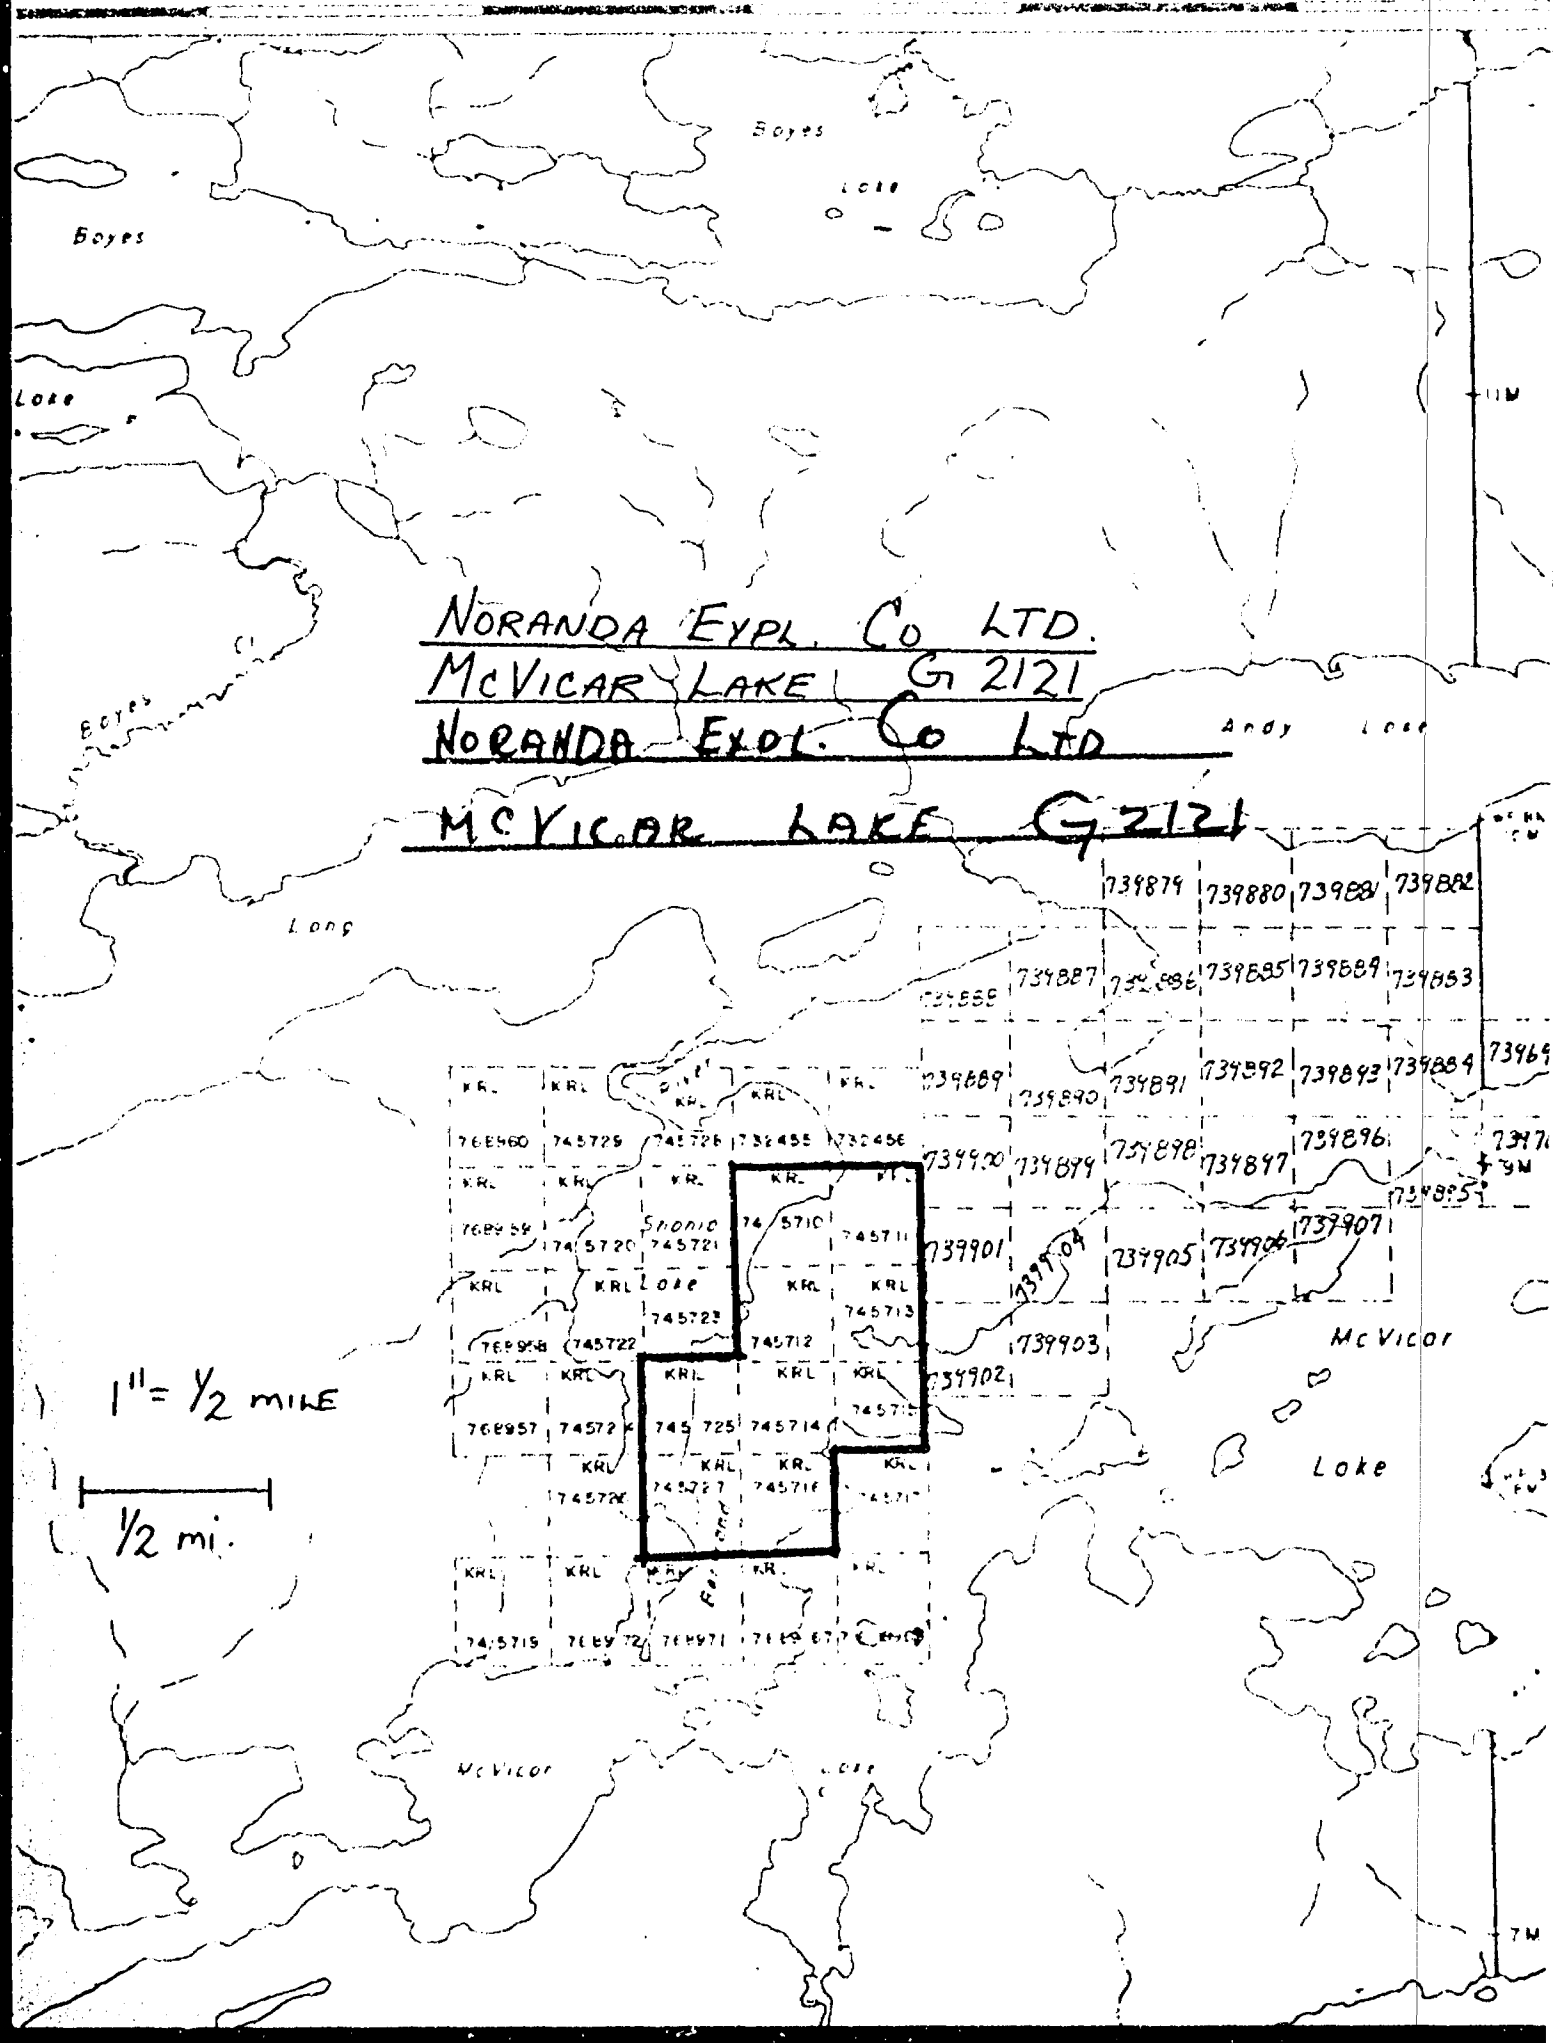 Boyes
Lake
Boyes
Lake
11M
NORANDA EXPL. CO LTD.
MCVICAR LAKE G 2121
Boyes
Andy Lake
NORANDA EXPL. CO LTD
MCVICAR LAKE G 2121
739879 739880 739881 739882
Long
739888 739887 739886 739885 739889 739883
KRL KRL KRL KRL KRL
739889 739890 739891 739892 739893 739884 73969
768960 745729 745728 732455 732456
739900 739899 739898 739897 739896
9M
739895
KRL KRL KRL KRL KRL
768959 745720 Shonia 745721 745710 745711
739901 739904 739905 739906 739907
KRL KRL Lake KRL KRL
745723 745713
768958 745722 745712
739903
McVicar
739902
KRL KRL KRL KRL KRL
1" = 1/2 MILE
768957 74572 745725 745714 745715
KRL KRL KRL KRL
745726 745727 745716 745717
Lake
1/2 mi.
KRL KRL KRL KRL KRL
745719 768972 768971 768967
McVicar Lake
7M